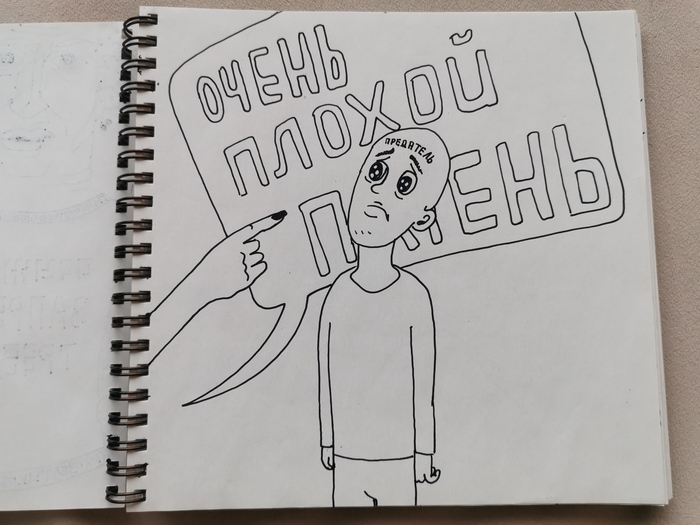 ОЧЕНЬ
ПЛОХОЙ
ПРЕДАТЕЛЬ